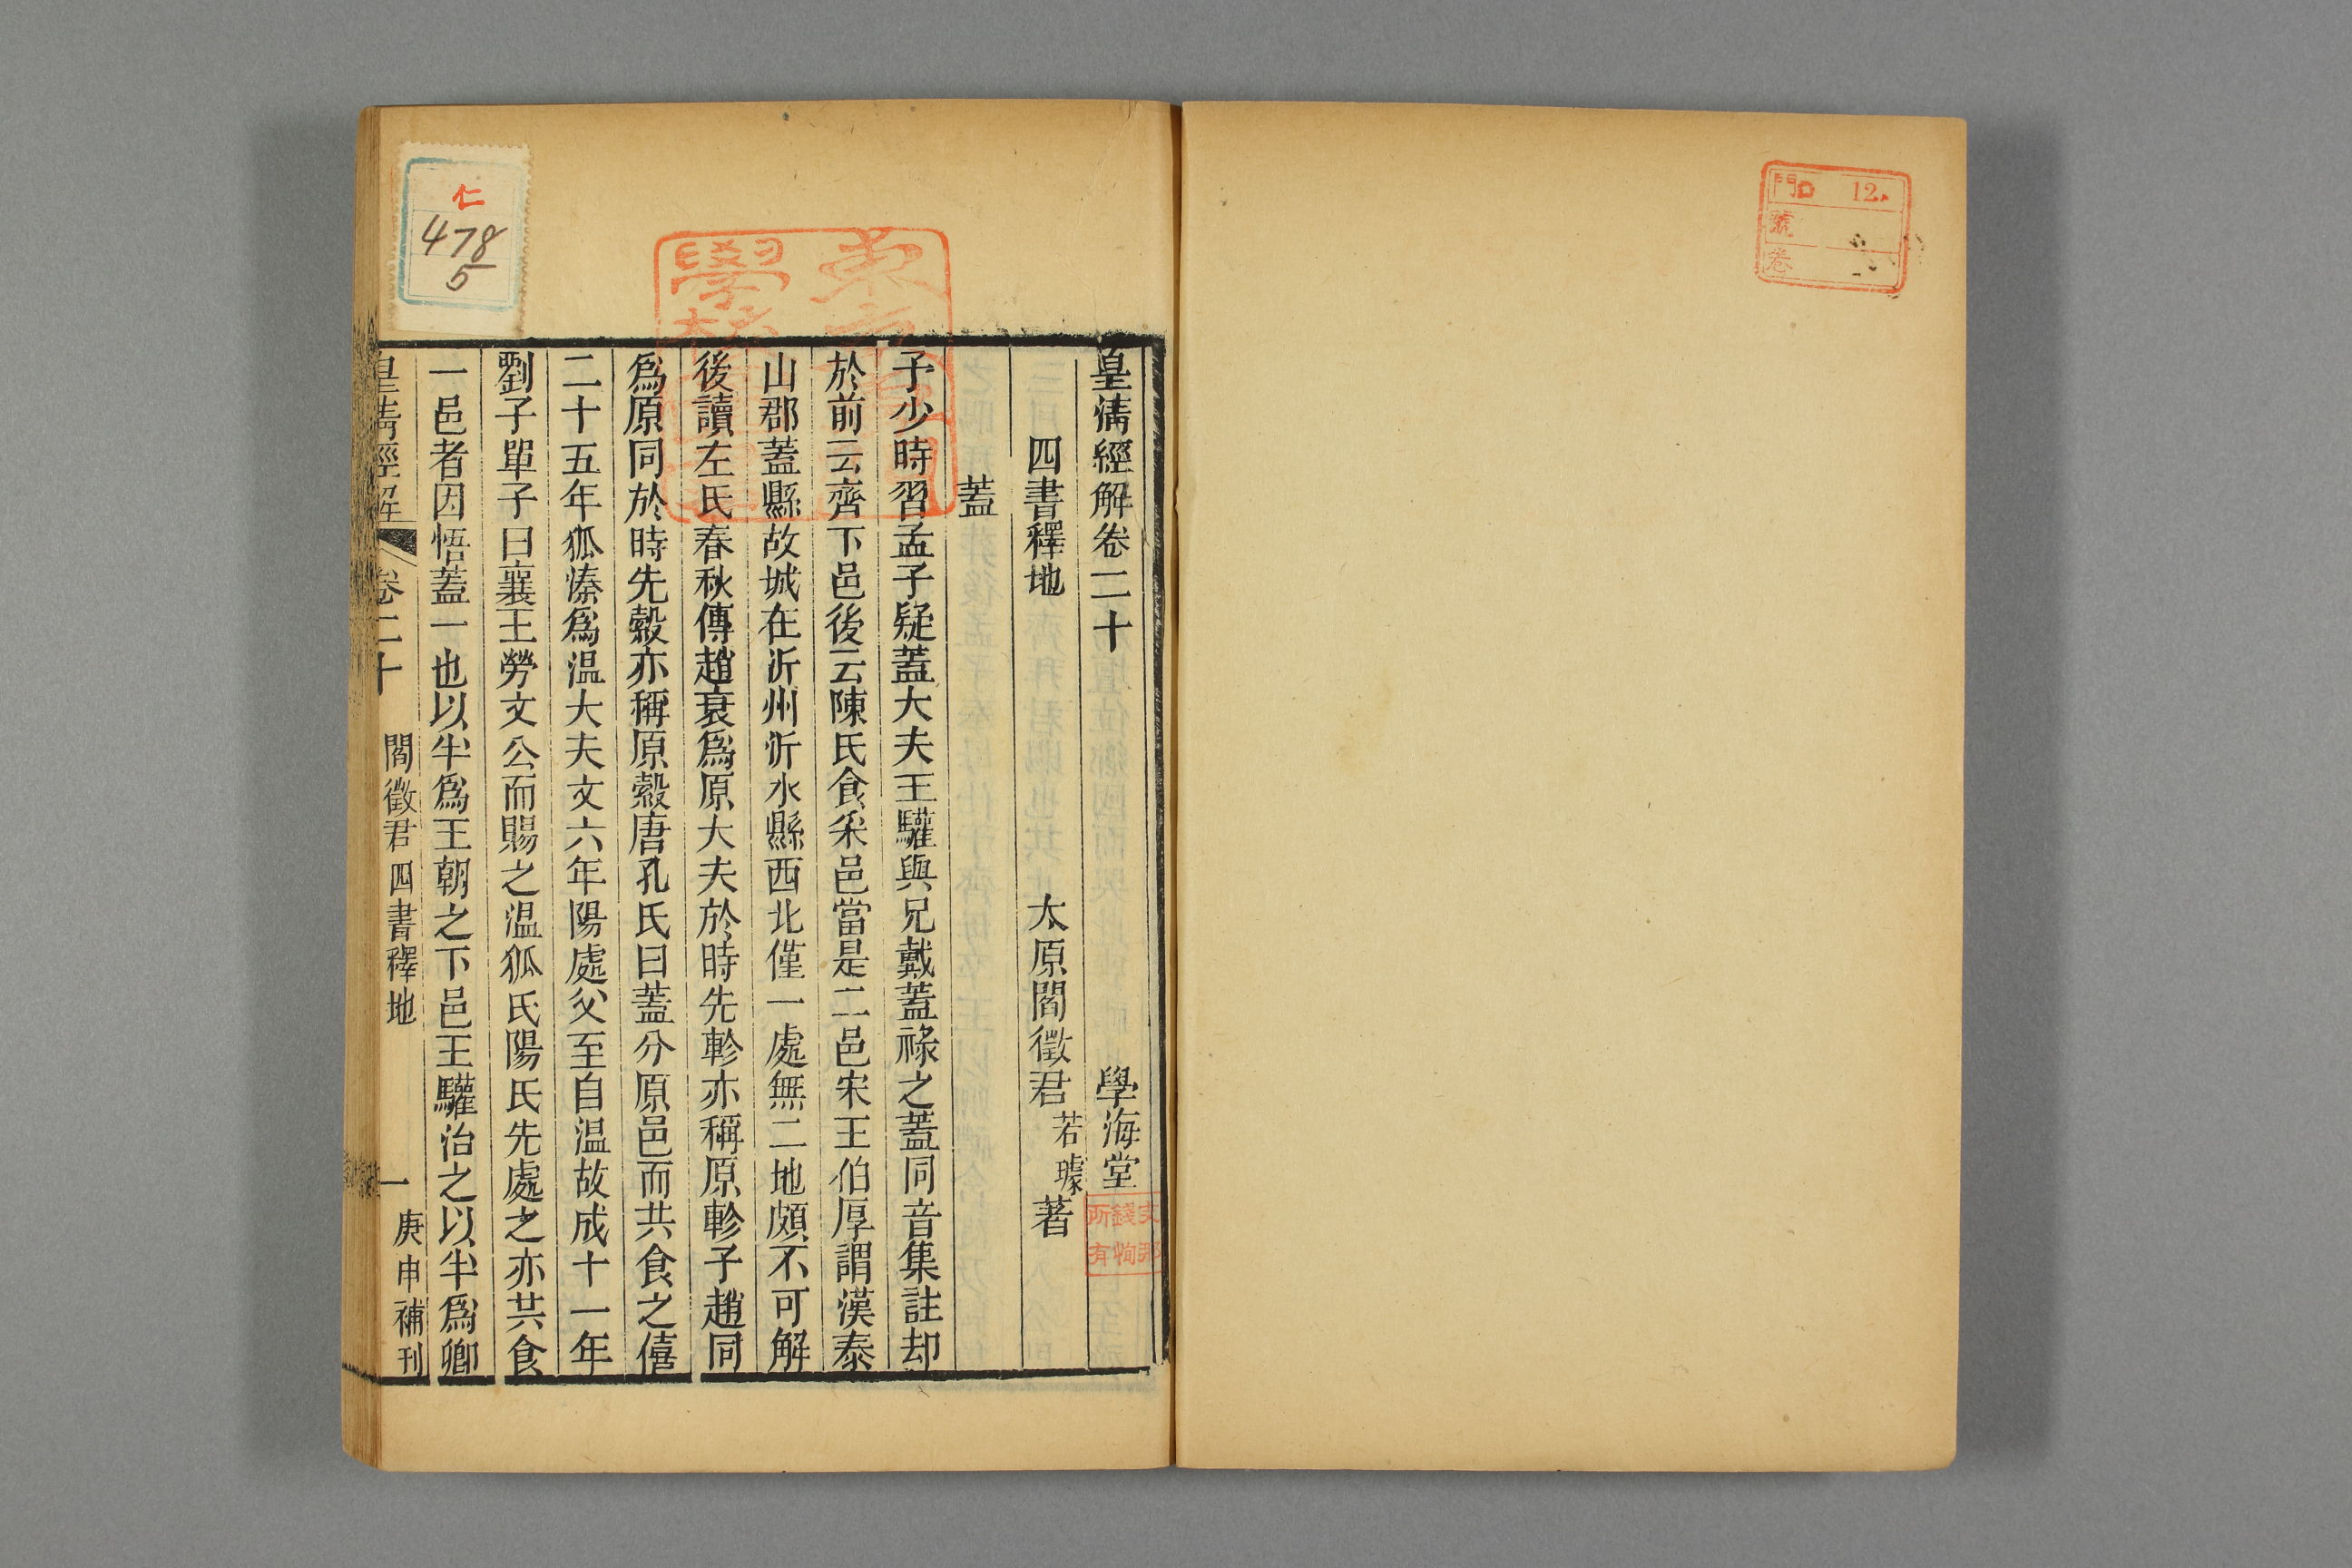 門 12
號
卷
皇清經解卷二十 學海堂
四書釋地 太原閻徵君若璩著
蓋
予少時習孟子疑蓋大夫王驩與兄戴蓋祿之蓋同音集註却
於前云齊下邑後云陳氏食采邑當是二邑宋王伯厚謂漢泰
山郡蓋縣故城在沂州沂水縣西北僅一處無二地頗不可解
後讀左氏春秋傳趙衰爲原大夫於時先軫亦稱原軫子趙同
爲原同於時先縠亦稱原縠唐孔氏曰蓋分原邑而共食之僖
二十五年狐溱爲温大夫文六年陽處父至自温故成十一年
劉子單子曰襄王勞文公而賜之温狐氏陽氏先處之亦共食
一邑者因悟蓋一也以半爲王朝之下邑王驩治之以半爲卿
皇清經解 卷二十 閻徵君四書釋地 一 庚申補刊
支那
錢恂
所有
仁
478
5